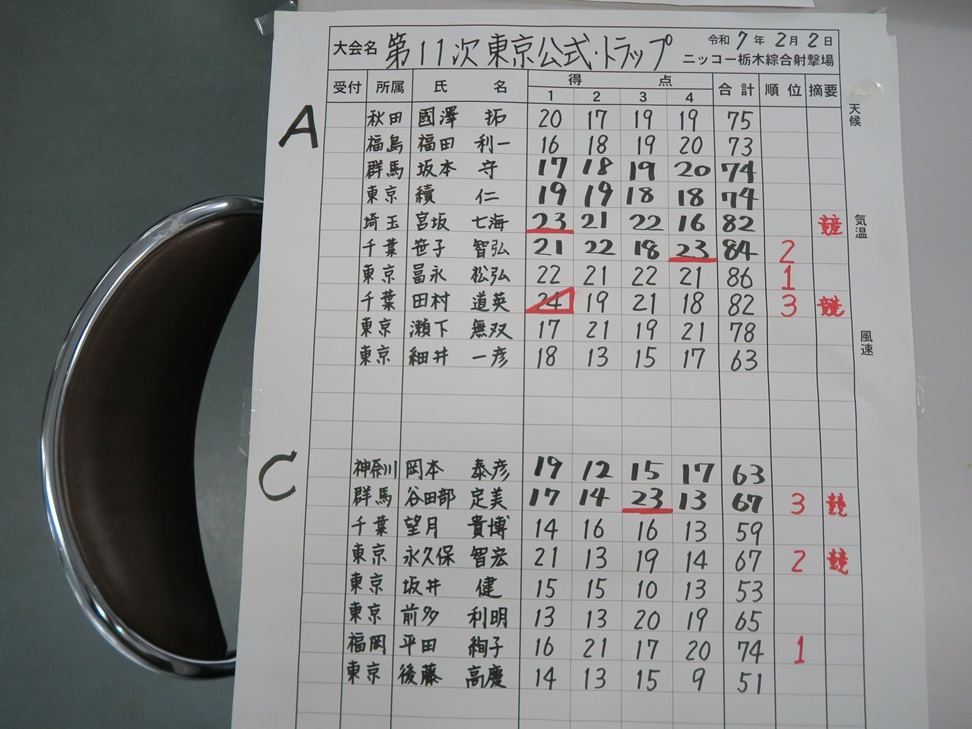 大会名 第11次東京公式・トラップ 令和7年2月2日
ニッコー栃木綜合射撃場
受付 所属 氏名 得点 合計 順位 摘要
1 2 3 4
天候
A
秋田 國澤 拓 20 17 19 19 75
福島 福田 利一 16 18 19 20 73
群馬 坂本 守 17 18 19 20 74
東京 續 仁 19 19 18 18 74
埼玉 宮坂 七海 23 21 22 16 82 競
気温
千葉 笹子 智弘 21 22 18 23 84 2
東京 冨永 松弘 22 21 22 21 86 1
千葉 田村 道英 24 19 21 18 82 3 競
東京 瀬下 無双 17 21 19 21 78
風速
東京 細井 一彦 18 13 15 17 63
C
神奈川 岡本 泰彦 19 12 15 17 63
群馬 谷田部 定美 17 14 23 13 67 3 競
千葉 望月 貴博 14 16 16 13 59
東京 永久保 智宏 21 13 19 14 67 2 競
東京 坂井 健 15 15 10 13 53
東京 前多 利明 13 13 20 19 65
福岡 平田 絢子 16 21 17 20 74 1
東京 後藤 高慶 14 13 15 9 51